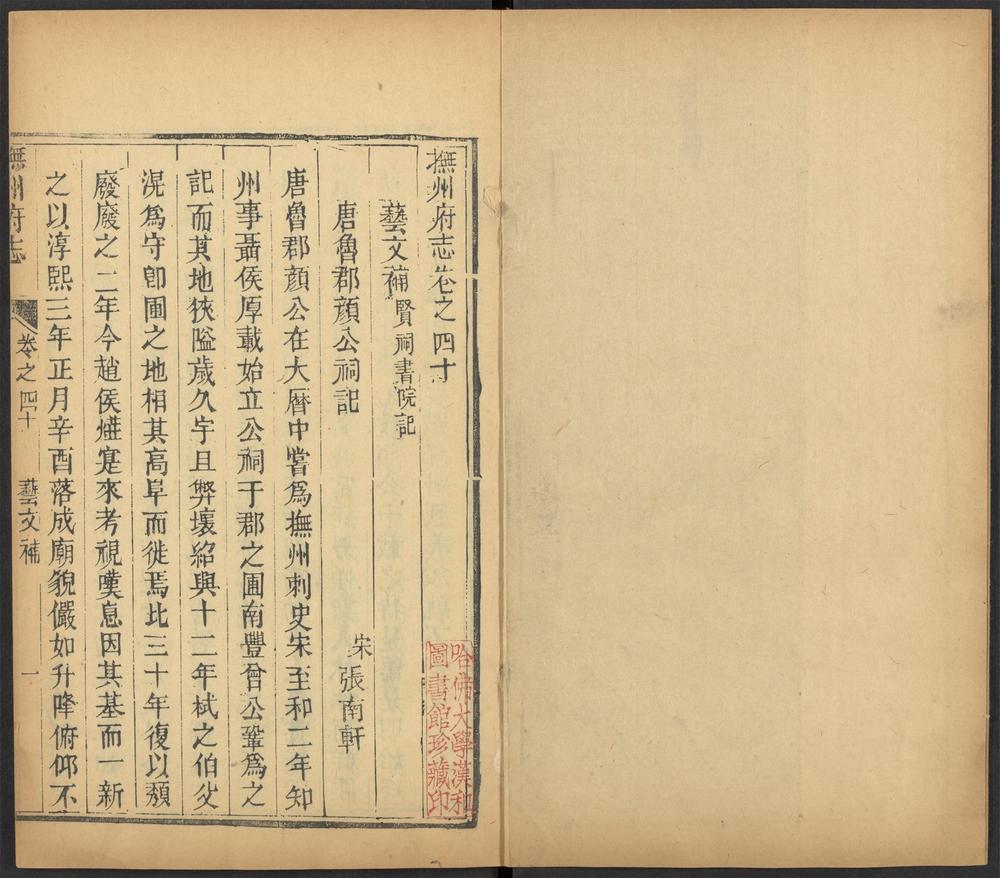 撫州府志卷之四十
藝文補 賢祠書院記
唐魯郡顏公祠記
宋 張南軒
唐魯郡顏公在大曆中嘗爲撫州刺史宋至和二年知
州事聶侯厚載始立公祠于郡之圃南豐曾公鞏爲之
記而其地狹隘歲久宇且弊壞紹興十二年栻之伯父
滉爲守卽圃之地相其高阜而徙焉比三十年復以頹
廢廢之二年今趙侯燁寔來考視嘆息因其基而一新
之以淳熙三年正月辛酉落成廟貌儼如升降俯仰不
撫州府志
卷之四十
藝文補
一
哈佛大學漢和
圖書館珍藏印